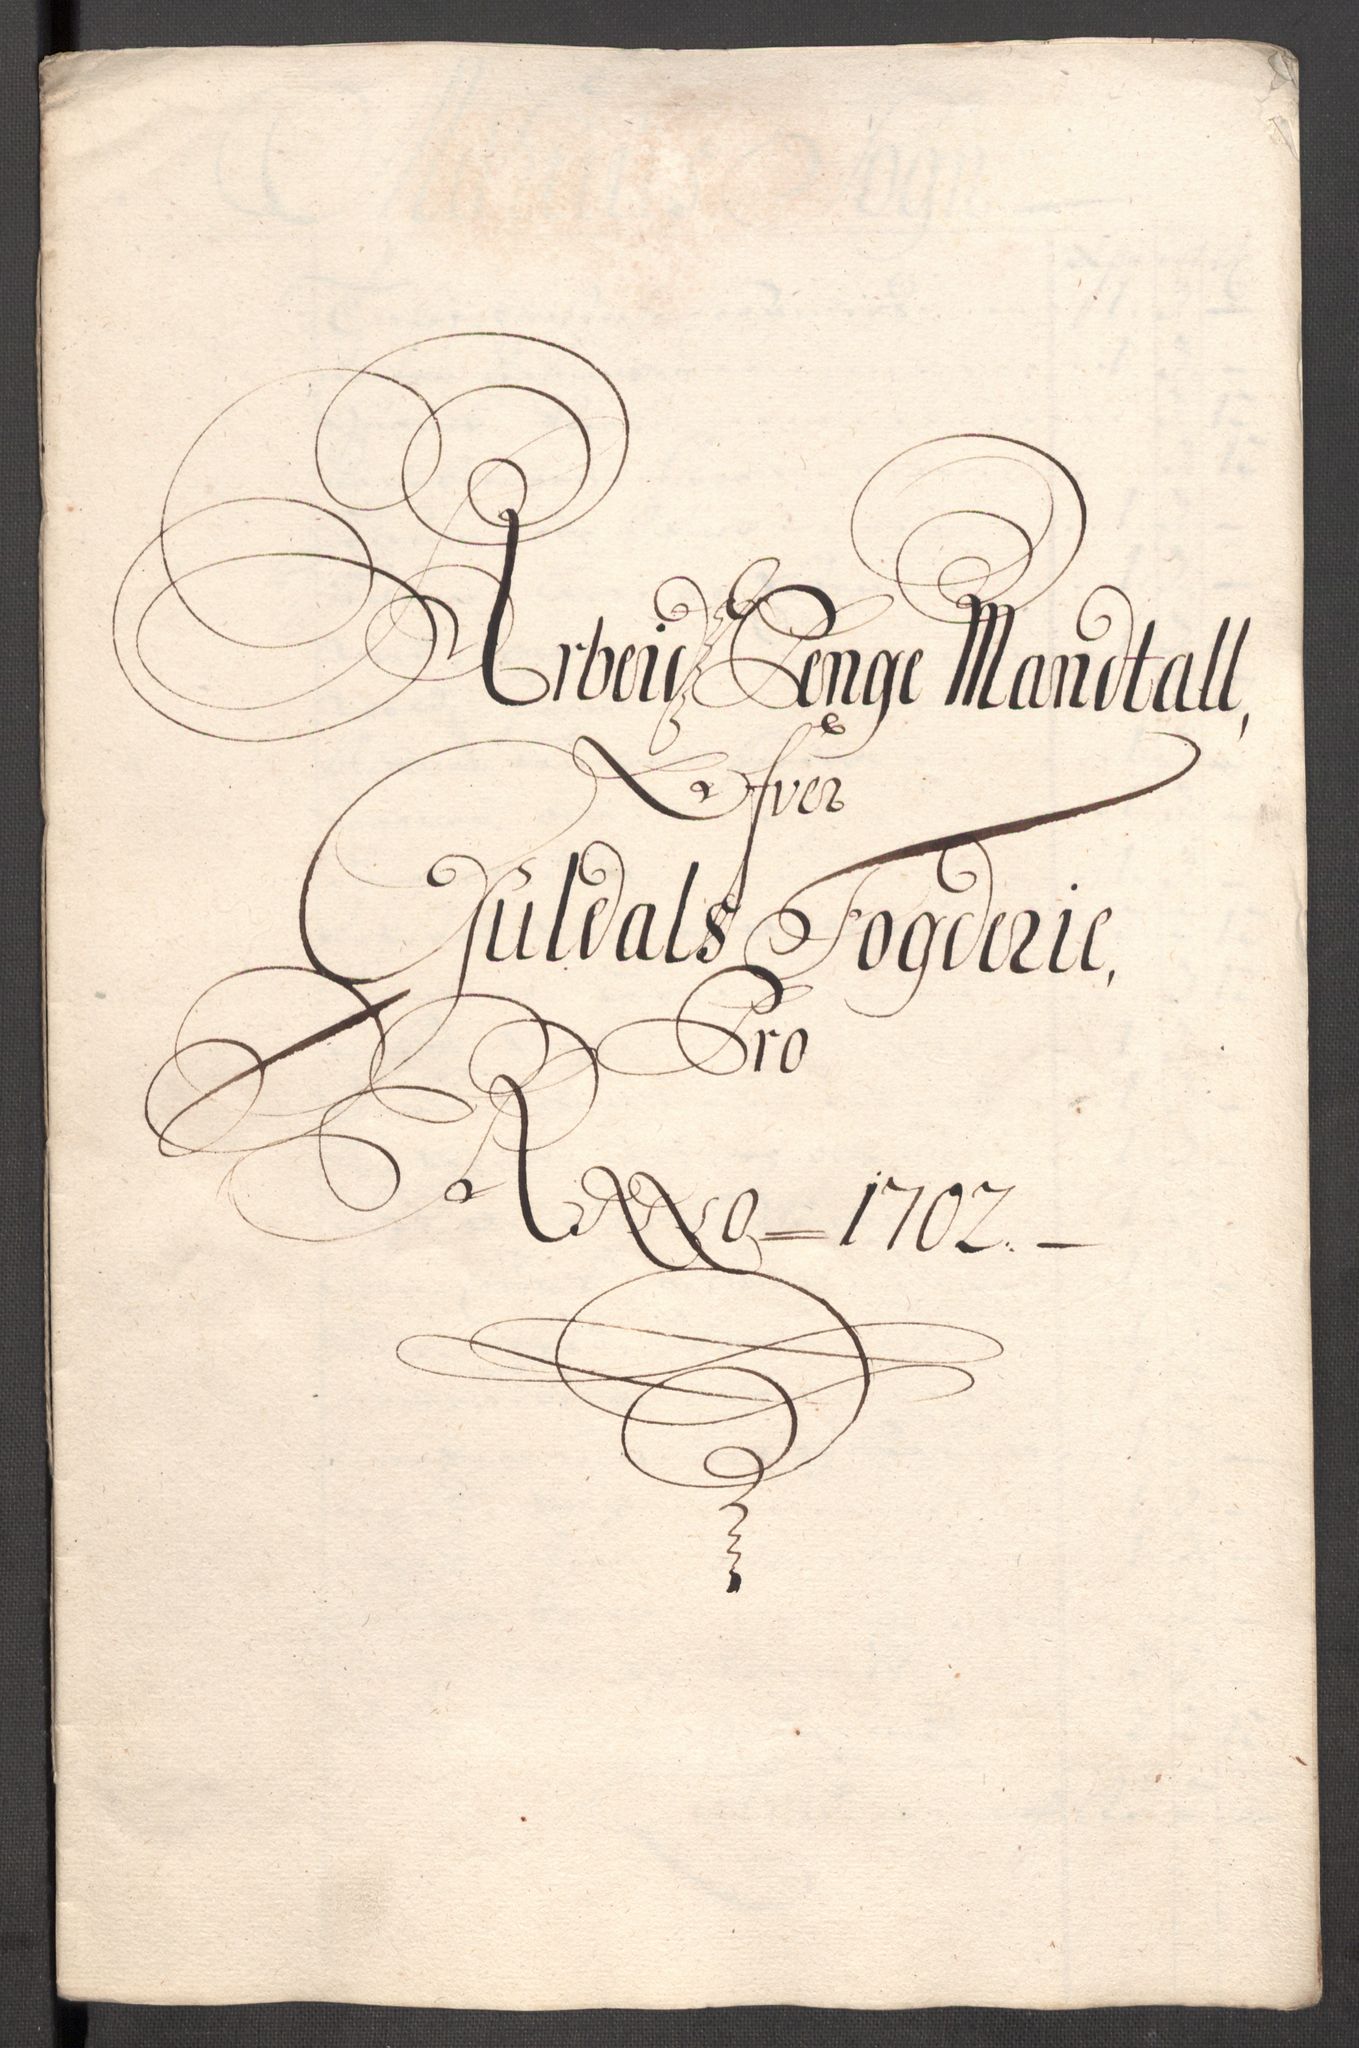 Arbeidz Penge Mandtall,
Ofver
Guldals Fogderie,
Pro
Anno 1702.